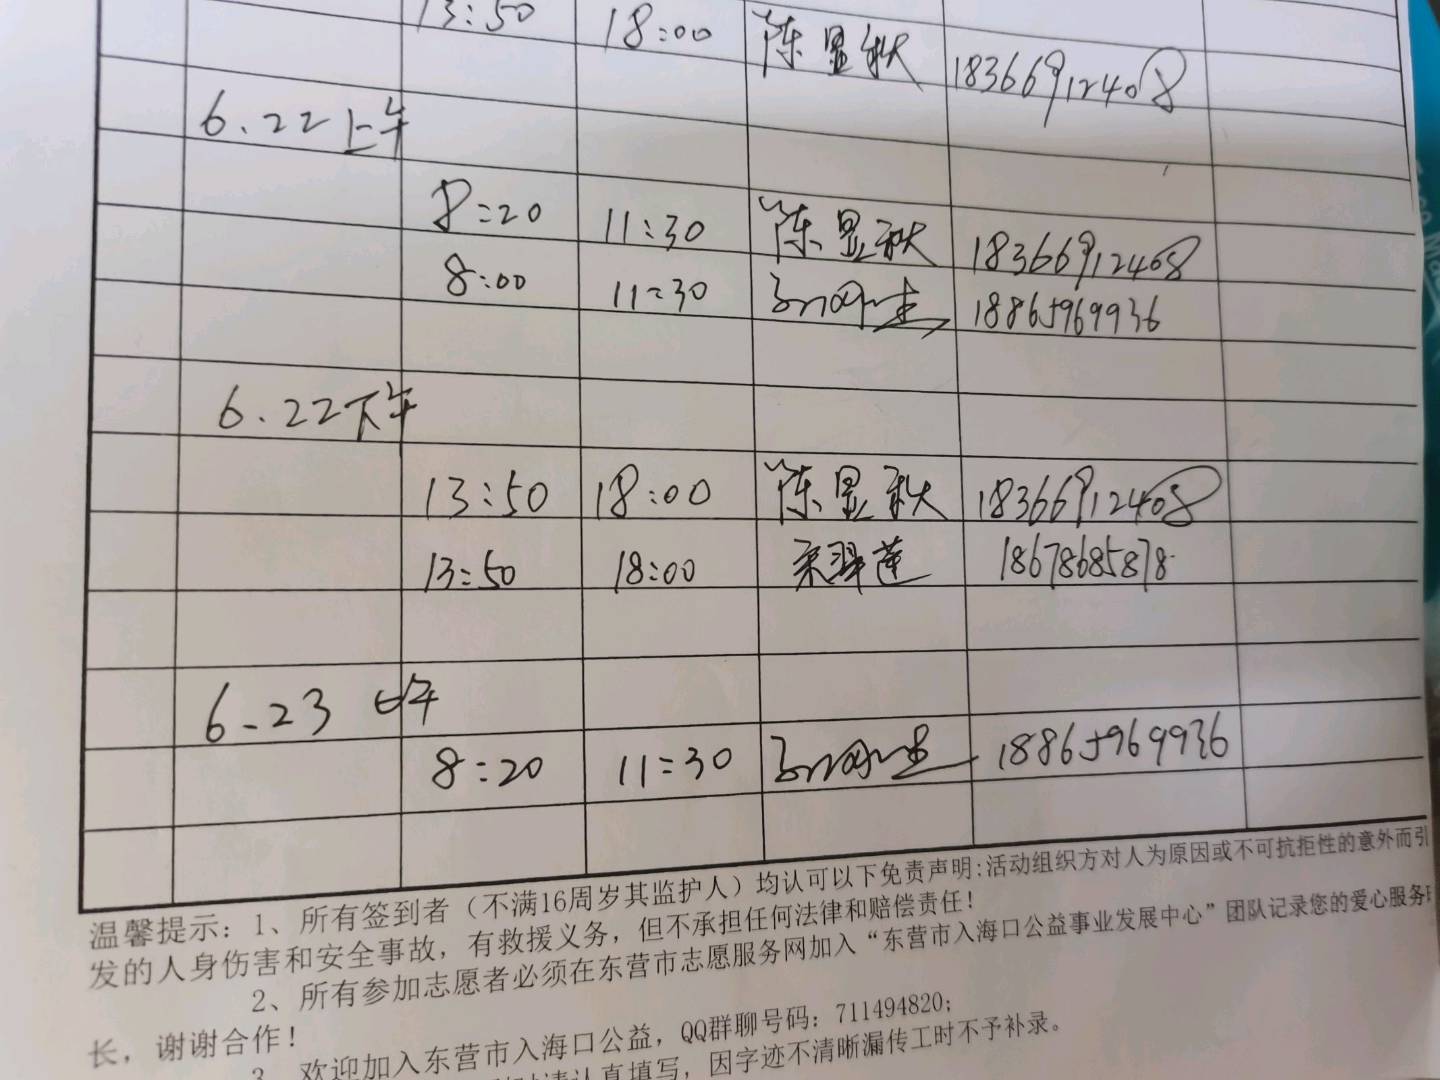 13:50 18:00 陈显秋 18366912408
6.22上午
8:20 11:30 陈显秋 18366912408
8:00 11:30 18865969936
6.22下午
13:50 18:00 陈显秋 18366912408
13:50 18:00 18678685878
6.23 上午
8:20 11:30 18865969936
温馨提示：1、所有签到者（不满16周岁其监护人）均认可以下免责声明:活动组织方对人为原因或不可抗拒性的意外而引
发的人身伤害和安全事故，有救援义务，但不承担任何法律和赔偿责任！
2、所有参加志愿者必须在东营市志愿服务网加入“东营市入海口公益事业发展中心”团队记录您的爱心服务时
长，谢谢合作！
3、欢迎加入东营市入海口公益，QQ群聊号码：711494820；
请认真填写，因字迹不清晰漏传工时不予补录。